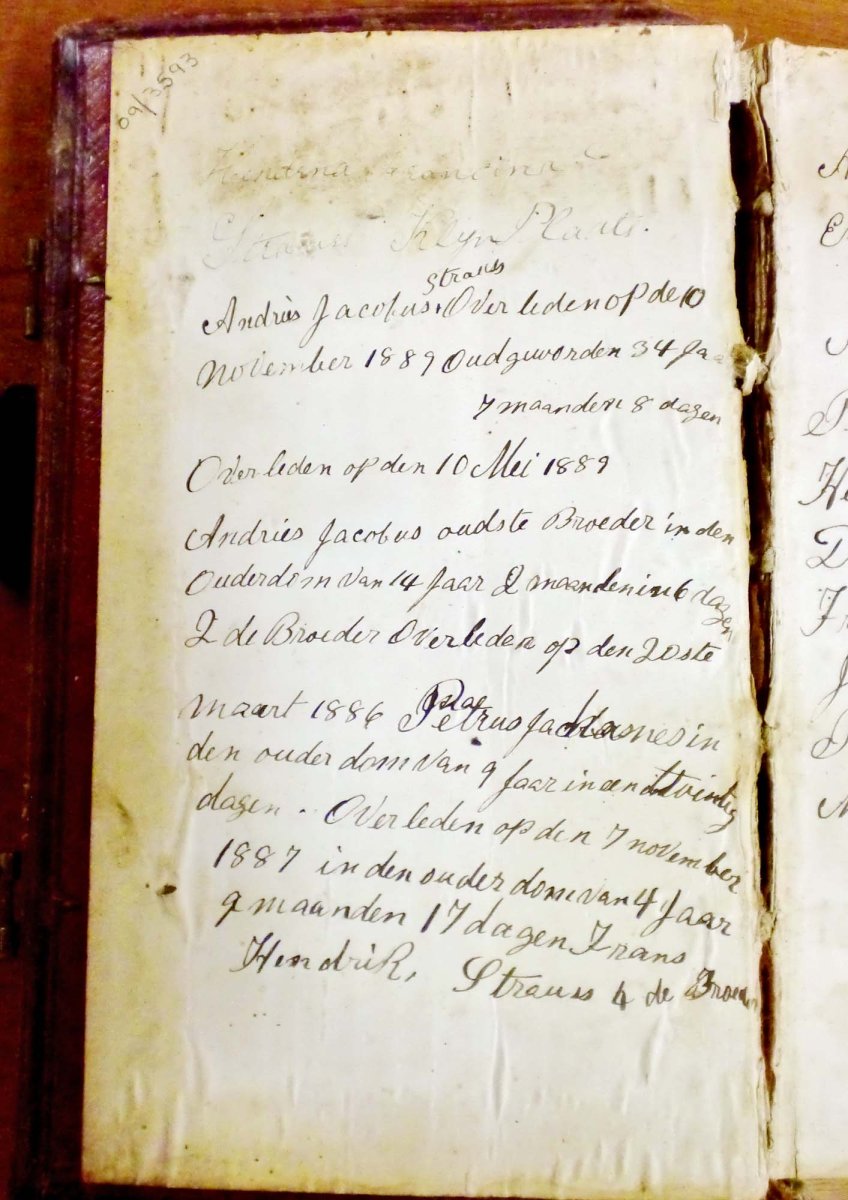 09/3593
Hendrina
Strauss Klyn Plaats.
Straus
Andries Jacobus. Overleden op de 10
November 1889 Oud geworden 34 Jaa
7 maanden 8 dagen
Overleden op den 10 Mei 1889
Andries Jacobus oudste Broeder in den
Ouderdom van 14 Jaar 2 maanden in 6 dagen
2 de Broeder Overleden op den 20ste
maart 1886 Petrus in
den ouderdom van 9 Jaar in een twintig
dagen. Overleden op den 7 november
1887 in den ouderdom van 4 Jaar
9 maanden 17 dagen Frans
Hendrik, Strauss 4 de Broeder